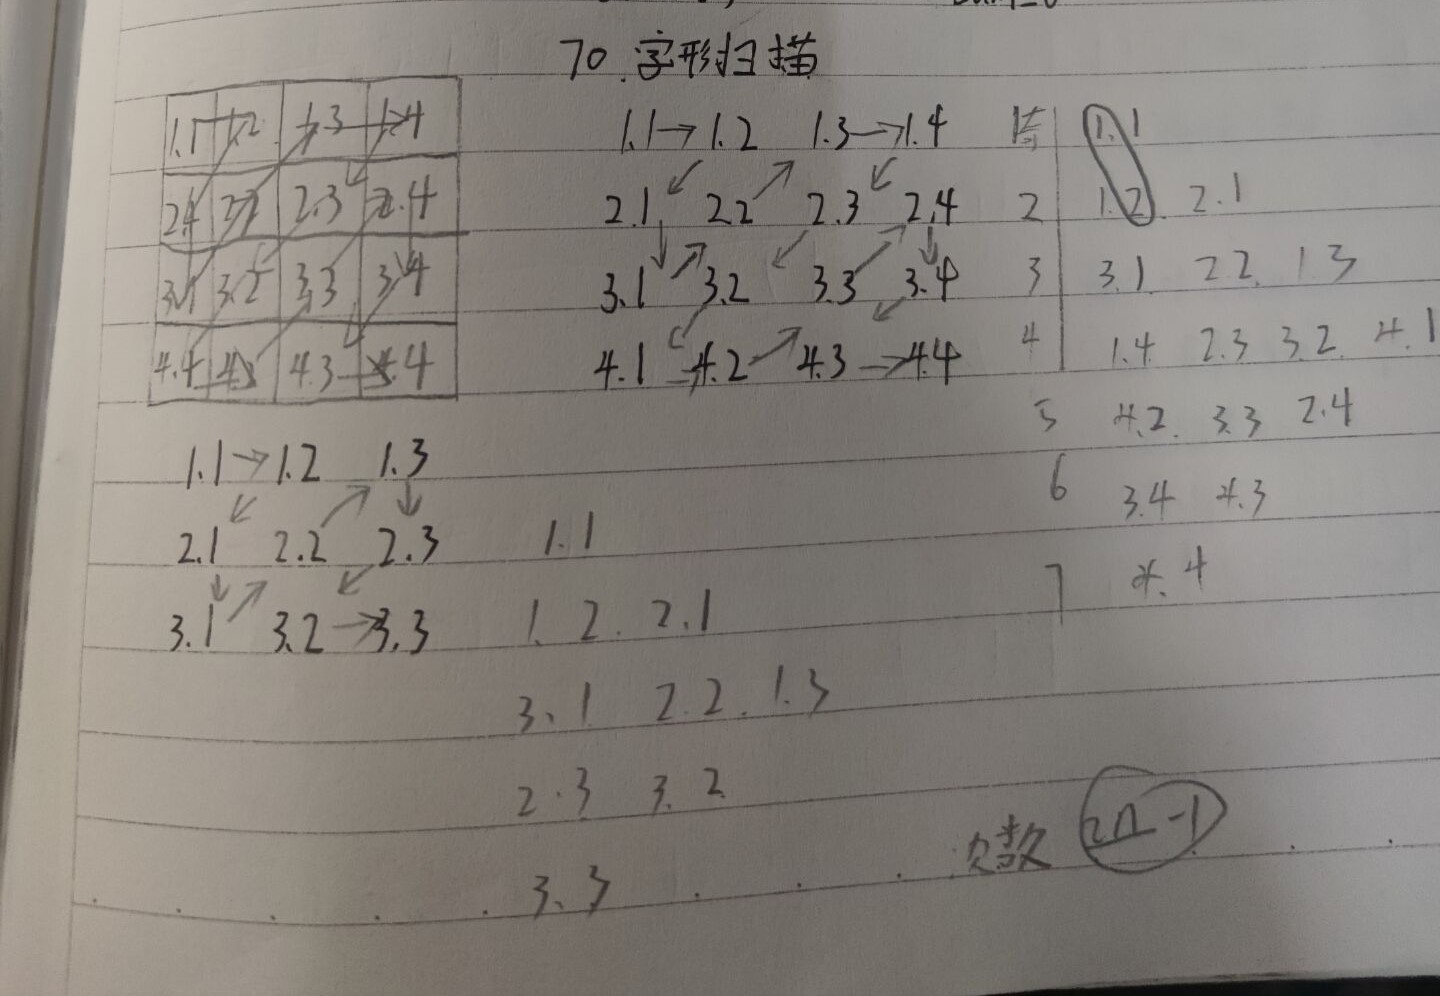 70.字形扫描
1.1 1.2 1.3 1.4
2.1 2.2 2.3 2.4
3.1 3.2 3.3 3.4
4.4 4.3 4.4
1.1→1.2 1.3→1.4
2.1 2.2 2.3 2.4
3.1 3.2 3.3 3.4
4.1→4.2 4.3→4.4
1.1
2 1.2 2.1
3 3.1 2.2 1.3
4 1.4 2.3 3.2 4.1
5 4.2 3.3 2.4
6 3.4 4.3
7 4.4
1.1→1.2 1.3
2.1 2.2 2.3
3.1 3.2→3.3
1.1
1.2. 2.1
3.1 2.2. 1.3
2.3 3.2
3.3
次数 2n-1